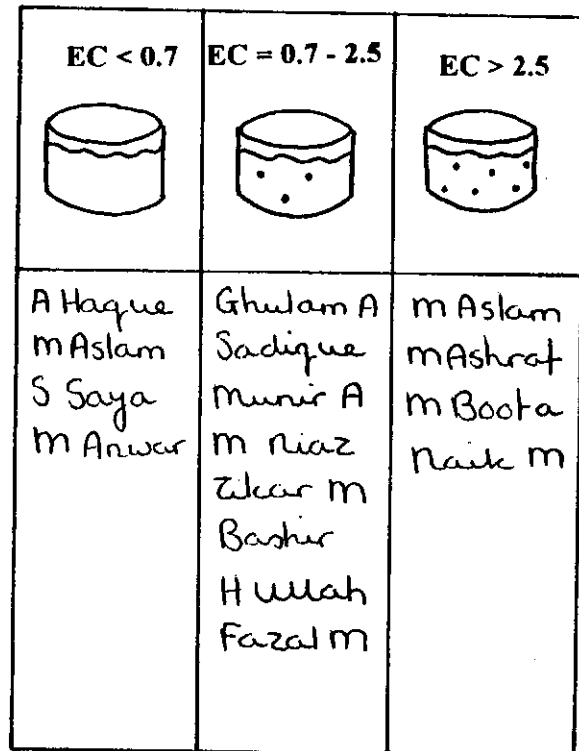 EC < 0.7
EC = 0.7 - 2.5
EC > 2.5
A Haque
M Aslam
S Saya
M Anwar
Ghulam A
Sadique
Munir A
M Riaz
Zikar M
Bashir
H Ullah
Fazal M
M Aslam
M Ashraf
M Boota
Naik M